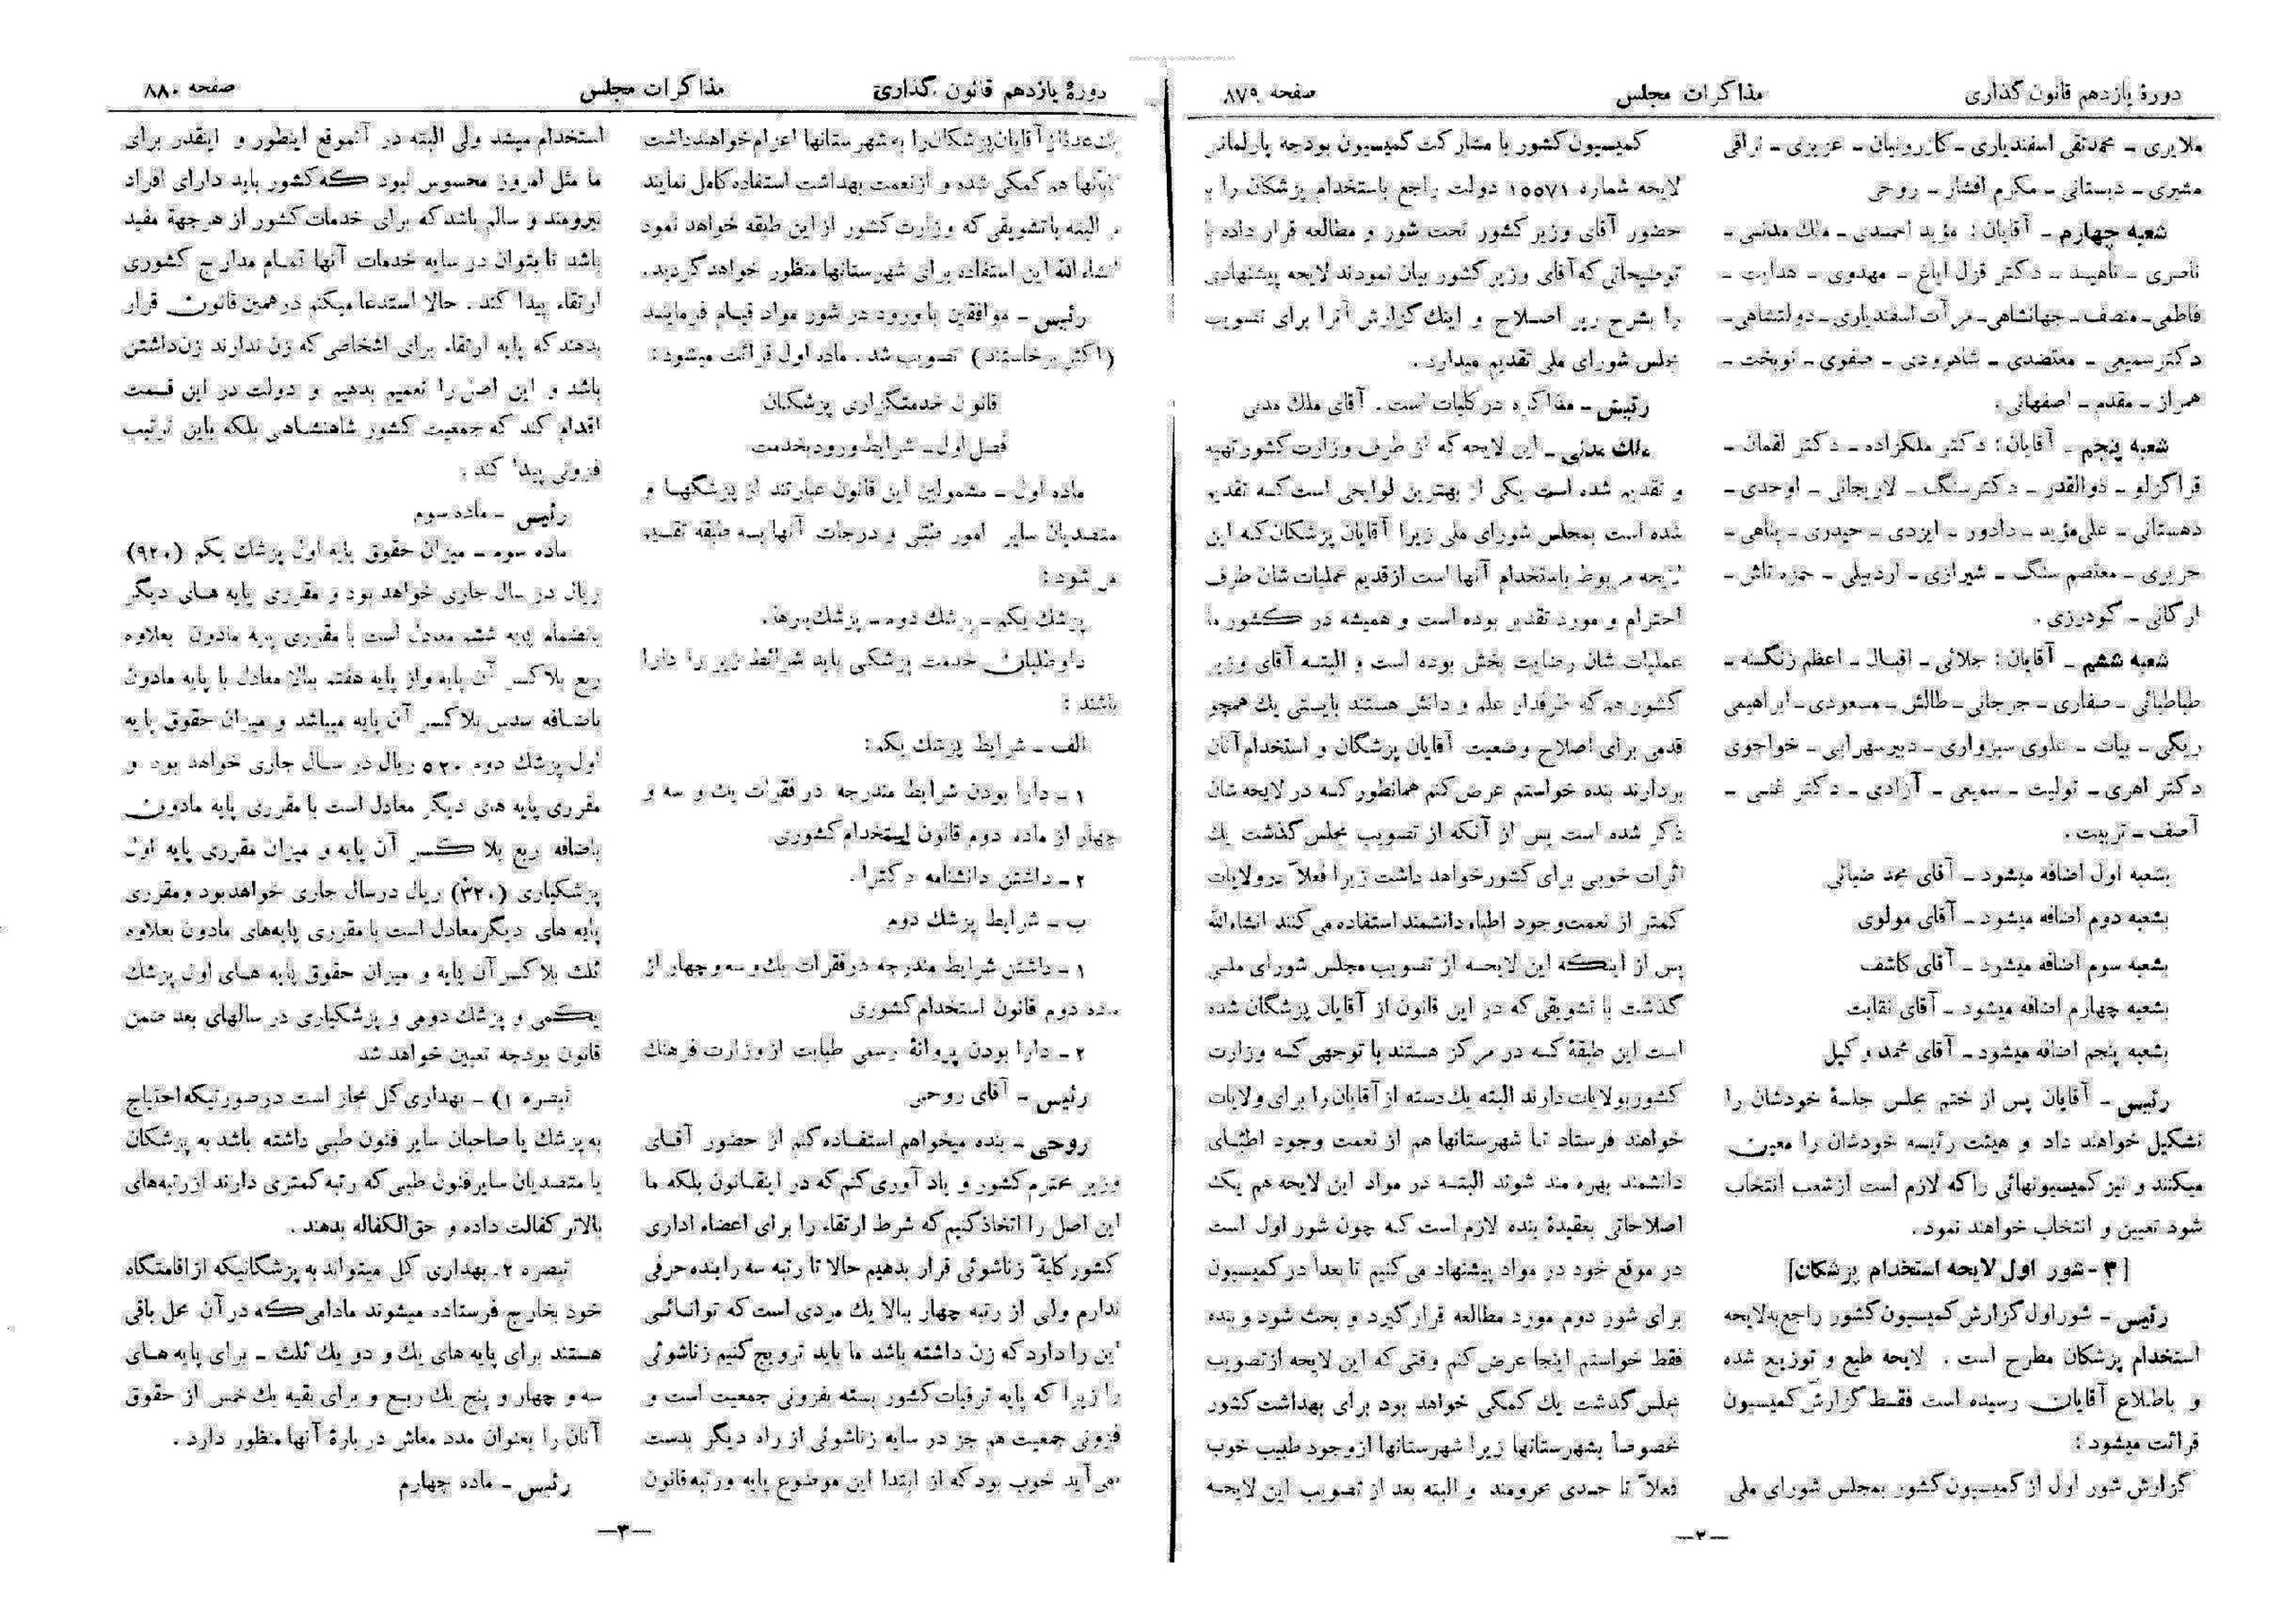 دورهٔ یازدهم قانون گذاری
مذاکرات مجلس
صفحه ۸۷۹
ملایری ـ محمدتقی اسفندیاری ـ کازرونیان ـ عزیزی ـ نراقی
مشیری ـ دبستانی ـ مکرم افشار ـ روحی
شعبه چهارم ـ آقایان: مؤید احمدی ـ ملك مدنی ـ
ناصری ـ ناهید ـ دکتر قزل ایاغ ـ مهدوی ـ هدایت ـ
فاطمی ـ منصف ـ جهانشاهی ـ مرآت اسفندیاری ـ دولتشاهی ـ
دکتر سمیعی ـ معتضدی ـ شاهرودی ـ صفوی ـ نوبخت ـ
همراز ـ مقدم ـ اصفهانی.
شعبه پنجم ـ آقایان: دکتر ملکزاده ـ دکتر لقمان ـ
قراگزلو ـ ذوالقدر ـ دکتر سنگ ـ لاریجانی ـ اوحدی ـ
دهستانی ـ علی مؤید ـ دادور ـ ایزدی ـ حیدری ـ پناهی ـ
حریری ـ معتصم سنگ ـ شیرازی ـ اردبیلی ـ حمزه تاش ـ
ارکانی ـ گودرزی.
شعبه ششم ـ آقایان: جلائی ـ اقبال ـ اعظم زنگنه ـ
طباطبائی ـ صفاری ـ جرجانی ـ طالش ـ مسعودی ـ ابراهیمی
ریگی ـ بیات ـ علوی سبزواری ـ دبیرسهرابی ـ خواجوی
دکتر اهری ـ تولیت ـ سمیعی ـ آزادی ـ دکتر غنی ـ
آصف ـ تربیت.
بشعبه اول اضافه میشود ـ آقای محمد ضیائی
بشعبه دوم اضافه میشود ـ آقای مولوی
بشعبه سوم اضافه میشود ـ آقای کاشف
بشعبه چهارم اضافه میشود ـ آقای نقابت
بشعبه پنجم اضافه میشود ـ آقای محمد وکیل
رئیس ـ آقایان پس از ختم مجلس جلسهٔ خودشان را
تشکیل خواهند داد و هیئت رئیسه خودشان را معین
میکنند و نیز کمیسیونهائی را که لازم است از شعب انتخاب
شود تعیین و انتخاب خواهند نمود.
[۳ - شور اول لایحه استخدام پزشکان]
رئیس ـ شور اول گزارش کمیسیون کشور راجع به لایحه
استخدام پزشکان مطرح است . لایحه طبع و توزیع شده
و باطلاع آقایان رسیده است فقط گزارش کمیسیون
قرائت میشود:
گزارش شور اول از کمیسیون کشور بمجلس شورای ملی
کمیسیون کشور با مشارکت کمیسیون بودجه پارلمانی
لایحه شماره ۱۵۵۷۱ دولت راجع باستخدام پزشکان را با
حضور آقای وزیر کشور تحت شور و مطالعه قرار داده با
توضیحاتی که آقای وزیر کشور بیان نمودند لایحه پیشنهادی
را بشرح زیر اصلاح و اینك گزارش آنرا برای تصویب
مجلس شورای ملی تقدیم میدارد.
رئیس ـ مذاکره در کلیات است . آقای ملك مدنی
ملك مدنی ـ این لایحه که از طرف وزارت کشور تهیه
و تقدیم شده است یکی از بهترین لوایحی است که تقدیم
شده است بمجلس شورای ملی زیرا آقایان پزشکان که این
لایحه مربوط باستخدام آنها است از قدیم عملیات شان طرف
احترام و مورد تقدیر بوده است و همیشه در کشور ما
عملیات شان رضایت بخش بوده است و البته آقای وزیر
کشور هم که طرفدار علم و دانش هستند بایستی یك همچو
قدمی برای اصلاح وضعیت آقایان پزشگان و استخدام آنان
بردارند بنده خواستم عرض کنم همانطور که در لایحه شان
ذکر شده است پس از آنکه از تصویب مجلس گذشت یك
اثرات خوبی برای کشور خواهد داشت زیرا فعلاً در ولایات
کمتر از نعمت وجود اطباء دانشمند استفاده می کنند انشاءالله
پس از اینکه این لایحه از تصویب مجلس شورای ملی
گذشت با تشویقی که در این قانون از آقایان پزشگان شده
است این طبقهٔ که در مرکز هستند با توجهی که وزارت
کشور بولایات دارند البته یك دسته از آقایان را برای ولایات
خواهند فرستاد تا شهرستانها هم از نعمت وجود اطبّای
دانشمند بهره مند شوند البته در مواد این لایحه هم یك
اصلاحاتی بعقیدهٔ بنده لازم است که چون شور اول است
در موقع خود در مواد پیشنهاد می کنیم تا بعداً در کمیسیون
برای شور دوم مورد مطالعه قرار گیرد و بحث شود و بنده
فقط خواستم اینجا عرض کنم وقتی که این لایحه از تصویب
مجلس گذشت یك کمکی خواهد بود برای بهداشت کشور
خصوصاً بشهرستانها زیرا شهرستانها از وجود طبیب خوب
فعلاً تا حدی محرومند و البته بعد از تصویب این لایحه
—۲—
دورهٔ یازدهم قانون گذاری
مذاکرات مجلس
صفحه ۸۸۰
یك عده از آقایان پزشکان را به شهرستانها اعزام خواهند داشت
که بآنها هم کمکی شده و از نعمت بهداشت استفاده کامل نمایند
و البته با تشویقی که وزارت کشور از این طبقه خواهد نمود
انشاءالله این استفاده برای شهرستانها منظور خواهد گردید.
رئیس ـ موافقین با ورود در شور مواد قیام فرمایند
(اکثر برخاستند) تصویب شد . ماده اول قرائت میشود:
قانون خدمتگزاری پزشکان
فصل اول ـ شرایط ورود بخدمت
ماده اول ـ مشمولین این قانون عبارتند از پزشگها و
متصدیان سایر امور طبی و درجات آنها به طبقه تقسیم
می شود:
پزشك یکم ـ پزشك دوم ـ پزشك
داوطلبان خدمت پزشکی باید شرائط زیر را دارا
باشند :
الف ـ شرایط پزشك یکم:
۱ ـ دارا بودن شرایط مندرجه در فقرات یك و سه و
چهار از ماده دوم قانون استخدام کشوری
۲ ـ داشتن دانشنامه دکترا.
ب ـ شرایط پزشك دوم
۱ ـ داشتن شرایط مندرجه در فقرات یك و سه و چهار از
ماده دوم قانون استخدام کشوری
۲ ـ دارا بودن پروانهٔ رسمی طبابت از وزارت فرهنك
رئیس ـ آقای روحی
روحی ـ بنده میخواهم استفاده کنم از حضور آقای
وزیر محترم کشور و یاد آوری کنم که در اینقانون بلکه ما
این اصل را اتخاذ کنیم که شرط ارتقاء را برای اعضاء اداری
کشور کلیة زناشوئی قرار بدهیم حالا تا رتبه سه را بنده حرفی
ندارم ولی از رتبه چهار ببالا یك مردی است که توانائی
این را دارد که زن داشته باشد ما باید ترویج کنیم زناشوئی
را زیرا که پایه ترقیات کشور بسته بفزونی جمعیت است و
فزونی جمعیت هم جز در سایه زناشوئی از راه دیگر بدست
نمی آید خوب بود که از ابتدا این موضوع پایه و رتبه قانون
استخدام میشد ولی البته در آنموقع اینطور و اینقدر برای
ما مثل امروز محسوس نبود که کشور باید دارای افراد
نیرومند و سالم باشد که برای خدمات کشور از هر جهة مفید
باشد تا بتوان در سایه خدمات آنها تمام مدارج کشوری
ارتقاء پیدا کند . حالا استدعا میکنم در همین قانون قرار
بدهند که پایه ارتقاء برای اشخاصی که زن ندارند زن داشتن
باشد و این اصل را تعمیم بدهیم و دولت در این قسمت
اقدام کند که جمعیت کشور شاهنشاهی بلکه باین ترتیب
فزونی پیدا کند :
رئیس ـ ماده سوم
ماده سوم ـ میزان حقوق پایه اول پزشك یکم (۹۲۰)
ریال در سال جاری خواهد بود و مقرری پایه های دیگر
باستثنای پایه ششم معادل است با مقرری پایه مادون بعلاوه
ربع بلاکسر آن پایه و از پایه هفتم ببالا معادل با پایه مادون
باضافه سدس بلاکسر آن پایه میباشد و میزان حقوق پایه
اول پزشك دوم ۵۲۰ ریال در سال جاری خواهد بود و
مقرری پایه های دیگر معادل است با مقرری پایه مادون
باضافه ربع بلا کسر آن پایه و میزان مقرری پایه اول
پزشکیاری (۳۲۰) ریال در سال جاری خواهد بود و مقرری
پایه های دیگر معادل است با مقرری پایه‌های مادون بعلاوه
ثلث بلاکسر آن پایه و میزان حقوق پایه های اول پزشك
یکمی و پزشك دومی و پزشکیاری در سالهای بعد ضمن
قانون بودجه تعیین خواهد شد
تبصره ۱) ـ بهداری کل مجاز است در صورتیکه احتیاج
به پزشك یا صاحبان سایر فنون طبی داشته باشد به پزشکان
یا متصدیان سایر فنون طبی که رتبه کمتری دارند از رتبه‌های
بالاتر کفالت داده و حق الکفاله بدهند .
تبصره ۲ـ بهداری کل میتواند به پزشگانیکه از اقامتگاه
خود بخارج فرستاده میشوند مادامی که در آن محل باقی
هستند برای پایه های یك و دو یك ثلث ـ برای پایه های
سه و چهار و پنج یك ربع و برای بقیه یك خمس از حقوق
آنان را بعنوان مدد معاش در بارهٔ آنها منظور دارد .
رئیس ـ ماده چهارم
—۳—